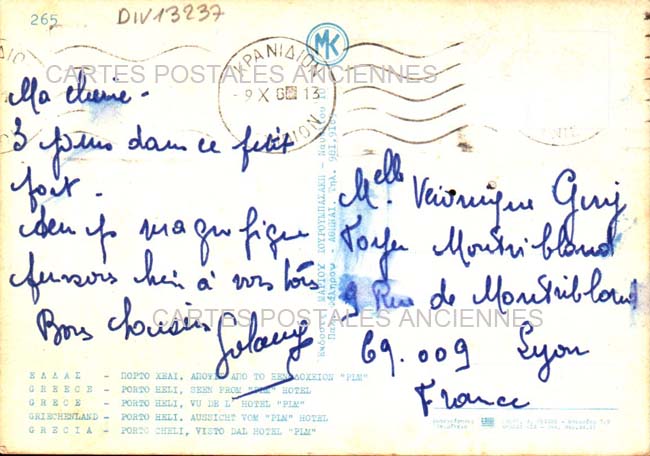 265
DIV13237
MK
ΚΡΑΝΙΔΙΟΝ
-9 X 6 13
CARTES POSTALES ANCIENNES
Ma cherie -
3 jours dans ce petit
port -
temps magnifique
pensons bien à vous tous
Bons baisers
Melle Véronique
Foyer Montribloud
9 Rue de Montribloud
69.009 Lyon
France
CARTES POSTALES ANCIENNES
ΕΛΛΑΣ - ΠΟΡΤΟ ΧΕΛΙ, ΑΠΟΨΙΣ ΑΠΟ ΤΟ ΞΕΝΟΔΟΧΕΙΟΝ "PLM"
GREECE - PORTO HELI, SEEN FROM "PLM" HOTEL
GRECE - PORTO HELI, VU DE L' HOTEL "PLM"
GRIECHENLAND - PORTO HELI, AUSSICHT VOM "PLM" HOTEL
GRECIA - PORTO CHELI, VISTO DAL HOTEL "PLM"